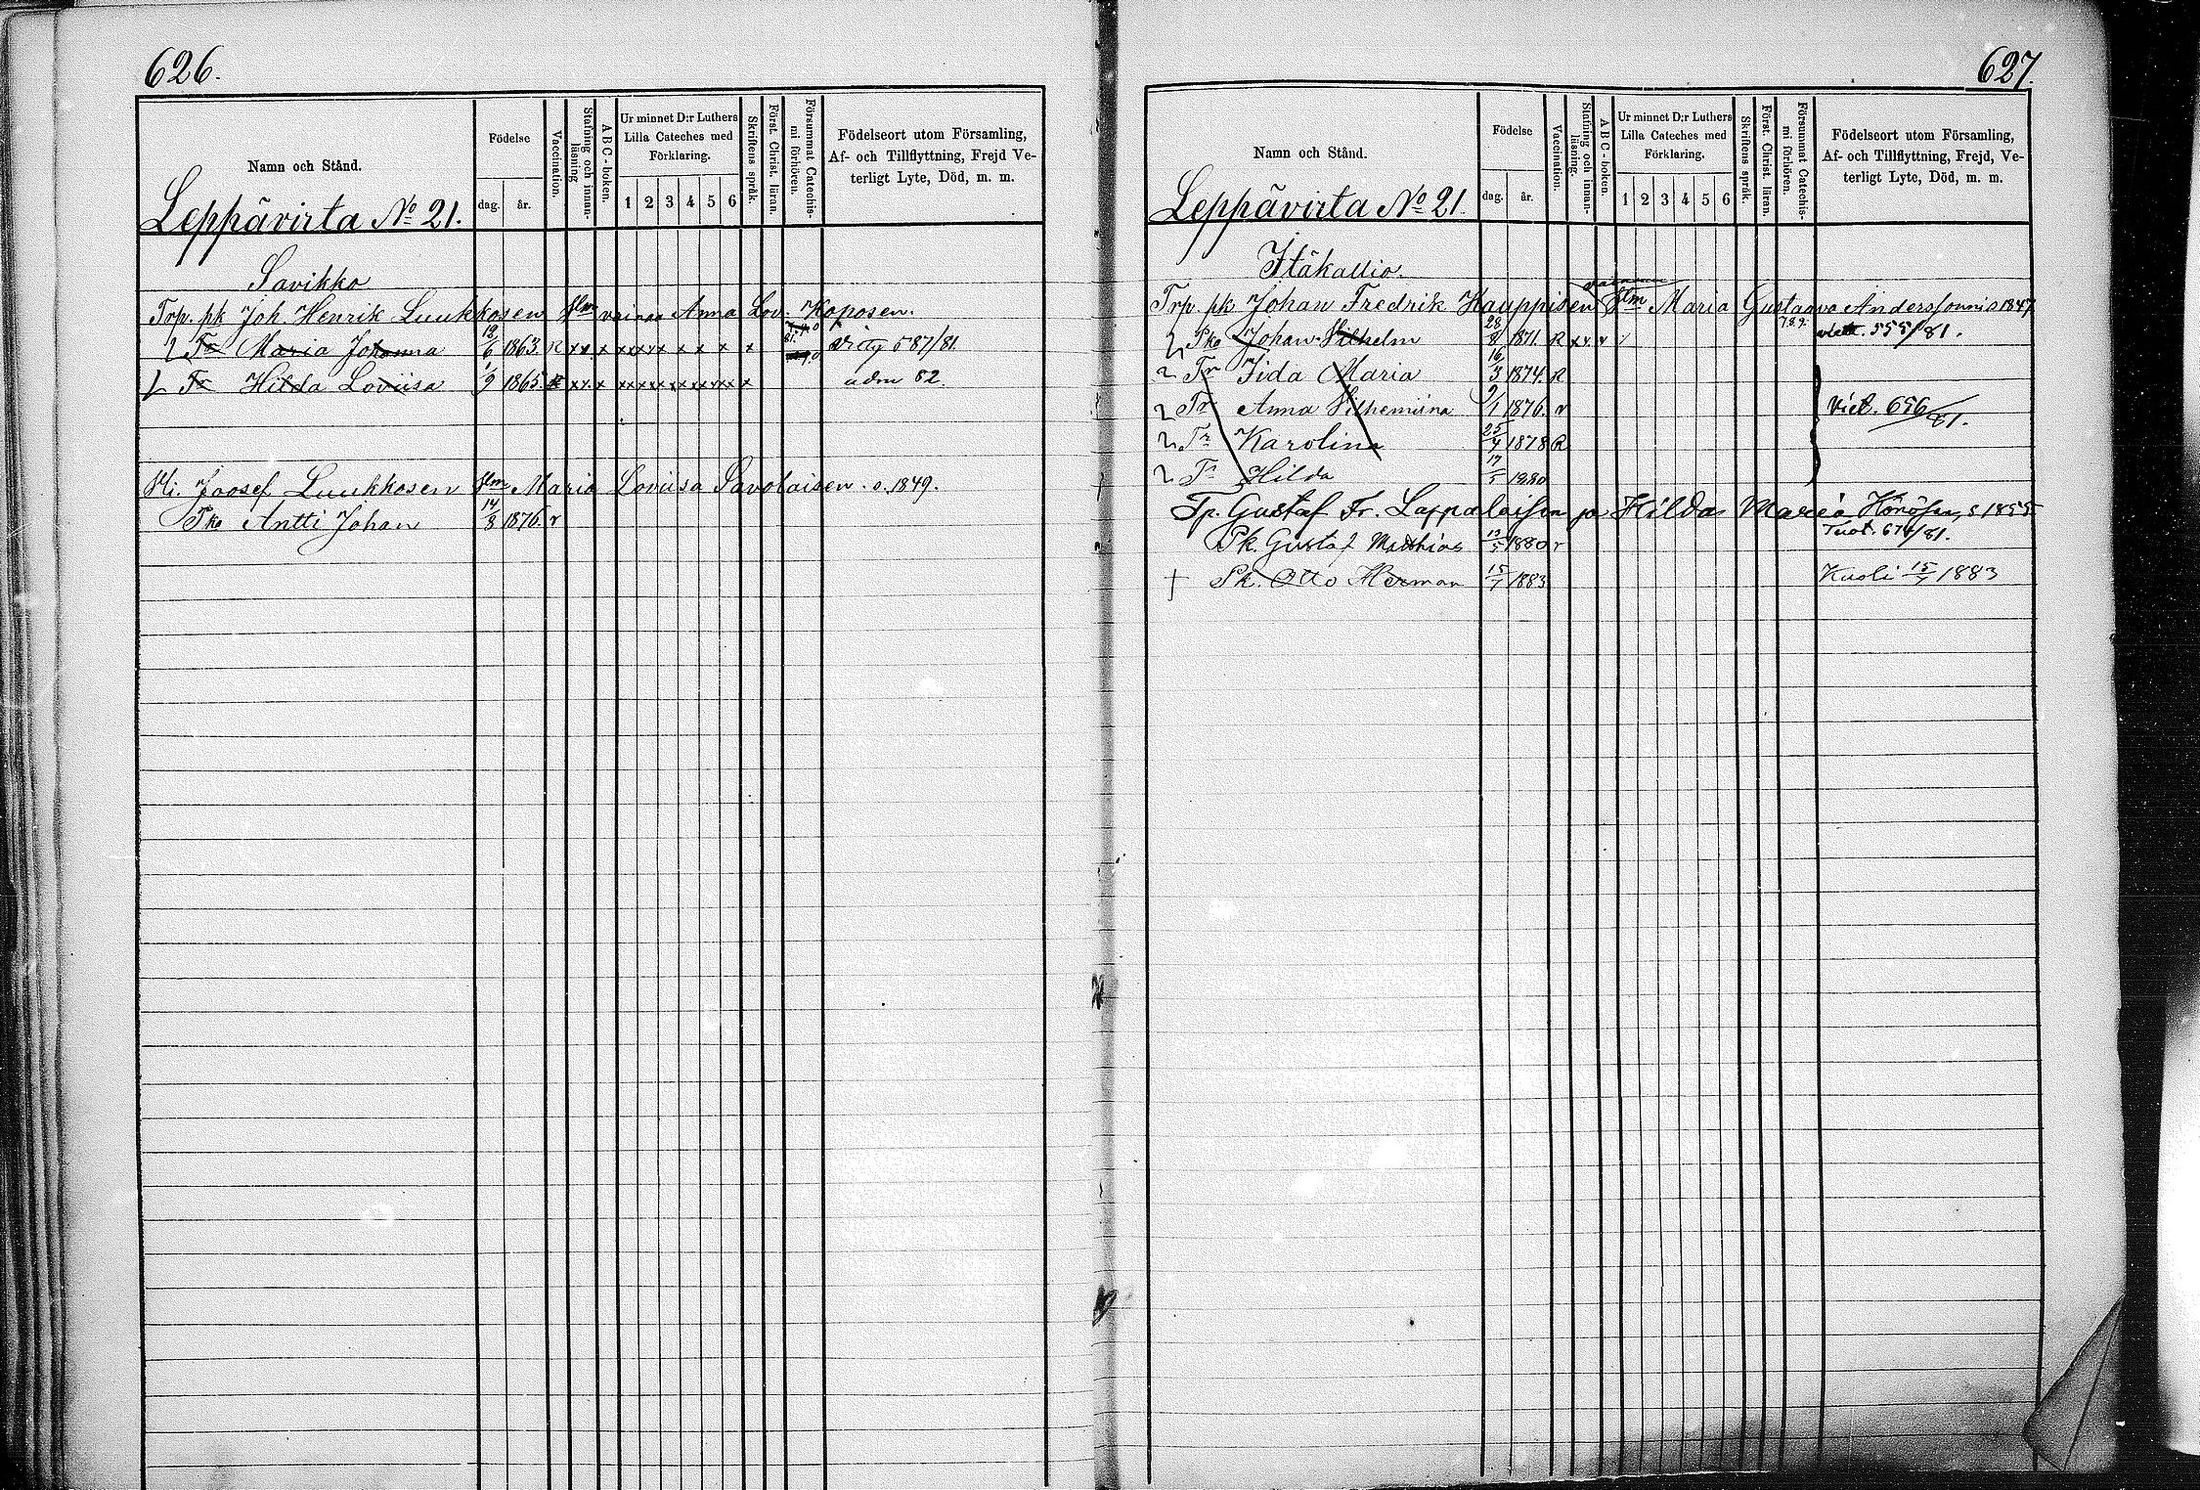 626.
Namn och Stånd.
Födelse
dag.
år.
Vaccination.
Stafning och innan-läsning
ABC-boken.
Ur minnet D:r Luthers
Lilla Cateches med
Förklaring.
1 2 3 4 5 6
Skriftens språk.
Först. Christ. läran.
Försummat Catechis-mi förhören.
Födelseort utom Församling,
Af- och Tillflyttning, Frejd Ve-
terligt Lyte, Död, m. m.
Leppävirta No 21.
Savikko
Torp. pk Joh. Henrik Luukkosen Anna Lov. Koposen.
Tr Maria Johanna 18/6 1863. R xx x xxxx x x x x 587/81.
Tr Hilda Loviisa 1/9 1865. R xx x xxxxxxxxx x adm 82.
Hi. Joosef Luukkosen Maria Loviisa Savolaisen. s. 1849.
Pko Antti Johan 14/8 1876. r
627.
Namn och Stånd.
Födelse
dag.
år.
Vaccination.
Stafning och innan-läsning.
ABC-boken.
Ur minnet D:r Luthers
Lilla Cateches med
Förklaring.
1 2 3 4 5 6
Skriftens språk.
Först. Christ. läran.
Försummat Catechis-mi förhören.
Födelseort utom Församling,
Af- och Tillflyttning, Frejd, Ve-
terligt Lyte, Död, m. m.
Leppävirta No 21.
Itäkallio.
Trp. pk Johan Fredrik Kauppisen Maria Gustaava 1847
Pko Johan Vilhelm 28/8 1871. R 7.8.9. 555/81.
Tr Iida Maria 16/3 1874. R
Tr Anna Vilhemiina 9/1 1876. r Viet. 696/81.
Tr Karolina 25/4 1878 R
Tr Hilda 17/5 1880
Tp. Gustaf Fr. Lappalaisen ja Hilda Maria s 1855
Pk. Gustaf Matthias 13/5 1880 r Tuot. 674/81.
† Pk. Otto Herman 15/7 1883 Kuoli 15/7 1883